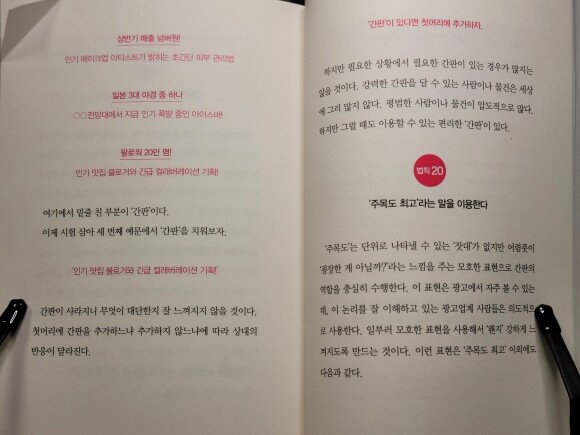 상반기 매출 넘버원!
인기 메이크업 아티스트가 밝히는 초간단 피부 관리법
일본 3대 야경 중 하나
○○전망대에서 지금 인기 폭발 중인 아이스바!
팔로워 20만 명!
인기 맛집 블로거와 긴급 컬래버레이션 기획!
여기에서 밑줄 친 부분이 '간판'이다.
이제 시험 삼아 세 번째 예문에서 '간판'을 치워보자.
'인기 맛집 블로거와 긴급 컬래버레이션 기획!'
간판이 사라지니 무엇이 대단한지 잘 느껴지지 않을 것이다.
첫머리에 간판을 추가하느냐 추가하지 않느냐에 따라 상대의
반응이 달라진다.
'간판'이 있다면 첫머리에 추가하자.
하지만 필요한 상황에서 필요한 간판이 있는 경우가 많지는
않을 것이다. 강력한 간판을 달 수 있는 사람이나 물건은 세상
에 그리 많지 않다. 평범한 사람이나 물건이 압도적으로 많다.
하지만 그럴 때도 이용할 수 있는 편리한 '간판'이 있다.
법칙 20
'주목도 최고'라는 말을 이용한다
'주목도'는 단위로 나타낼 수 있는 '잣대'가 없지만 어렴풋이
'굉장한 게 아닐까?'라는 느낌을 주는 모호한 표현으로 간판의
역할을 충실히 수행한다. 이 표현은 광고에서 자주 볼 수 있는
데, 이 논리를 잘 이해하고 있는 광고업계 사람들은 의도적으
로 사용한다. 일부러 모호한 표현을 사용해서 '왠지' 강하게 느
껴지도록 만드는 것이다. 이런 표현은 '주목도 최고' 이외에도
다음과 같다.